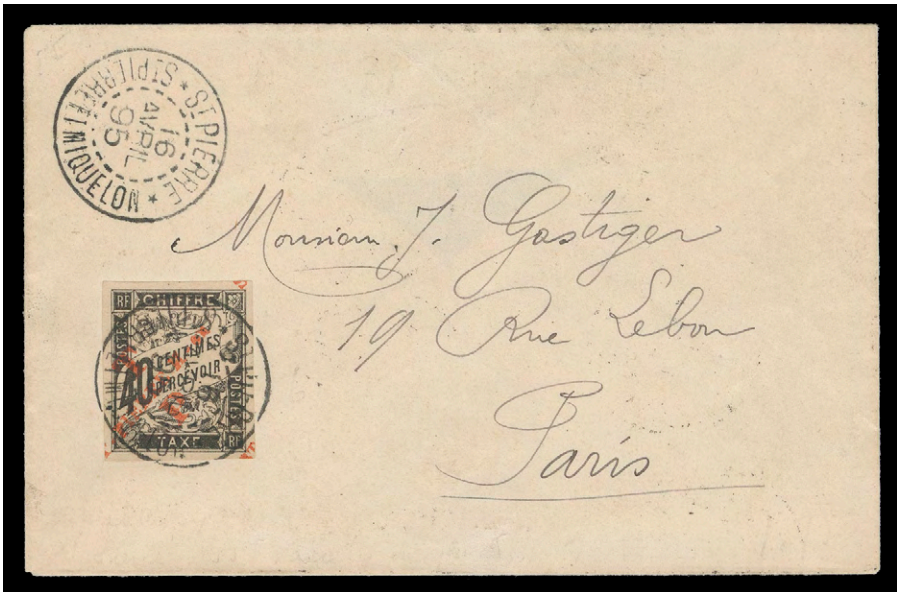 ST PIERRE
ST PIERRE ET MIQUELON
16
AVRIL
95
Monsieur J. Gastiger
19 Rue Lebon
Paris
RF CHIFFRE
POSTES
40 CENTIMES
PERCEVOIR
POSTES
TAXE RF